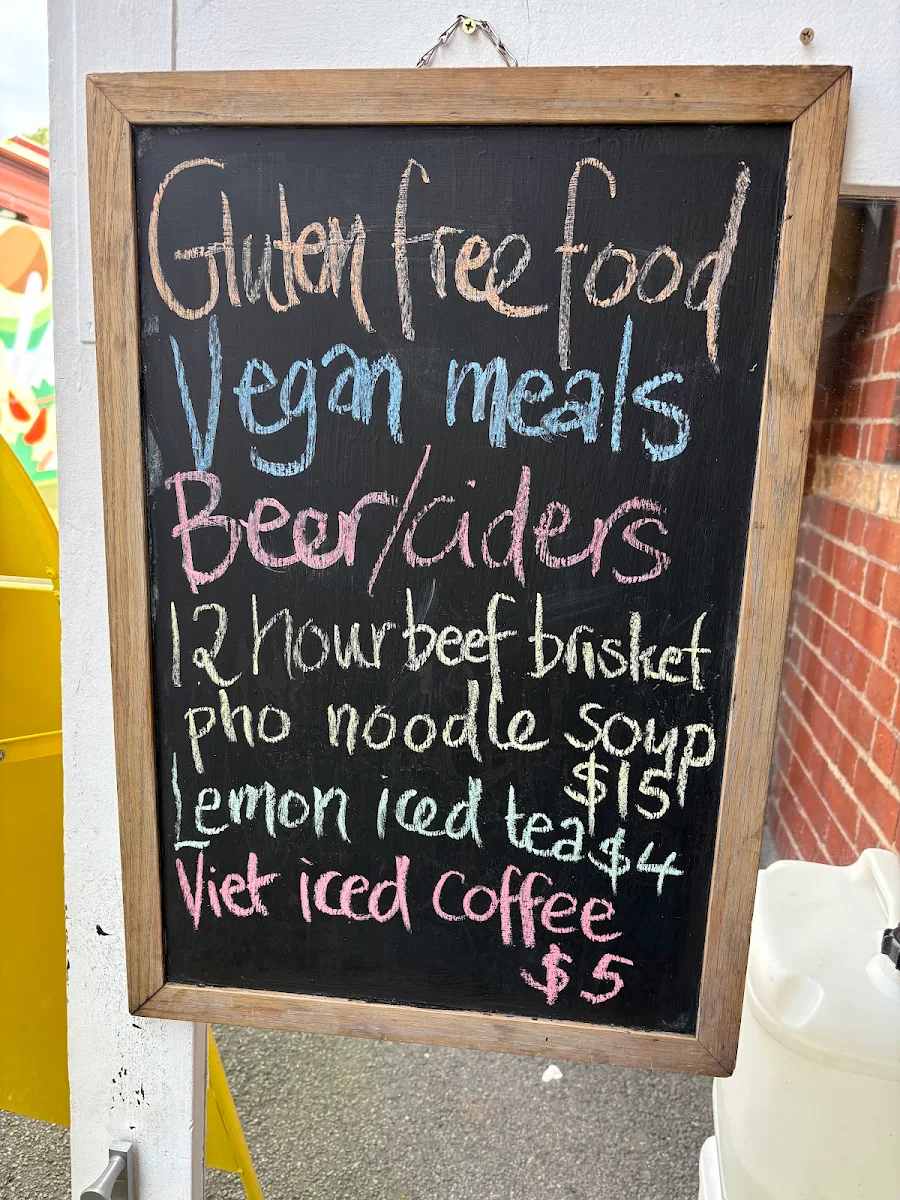 Gluten free food
Vegan meals
Beer/ciders
12 hour beef brisket
pho noodle soup
$15
Lemon iced tea $4
Viet iced coffee
$5